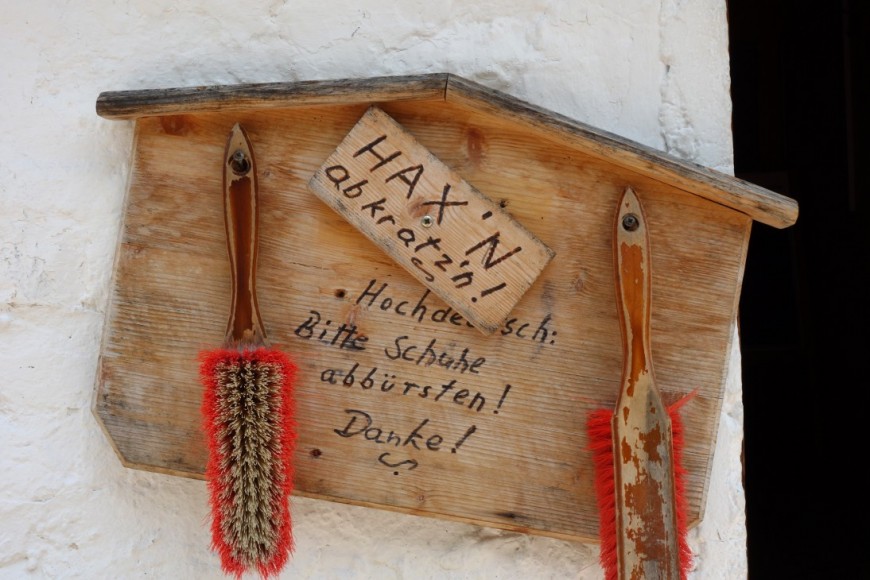 HAX'N
abkratz'n!
Hochdeutsch:
Bitte Schuhe
abbürsten!
Danke!